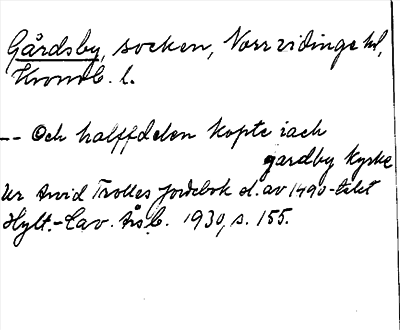 Gårdsby, socken, Norrvidinge hd,
Kronob. l.
-- Och halffdelen kopte iach
gardby kyrke
Ur Arvid Trolles jordebok sl. av 1490-talet
Hylt.-Cav. Årsb. 1930, s. 155.